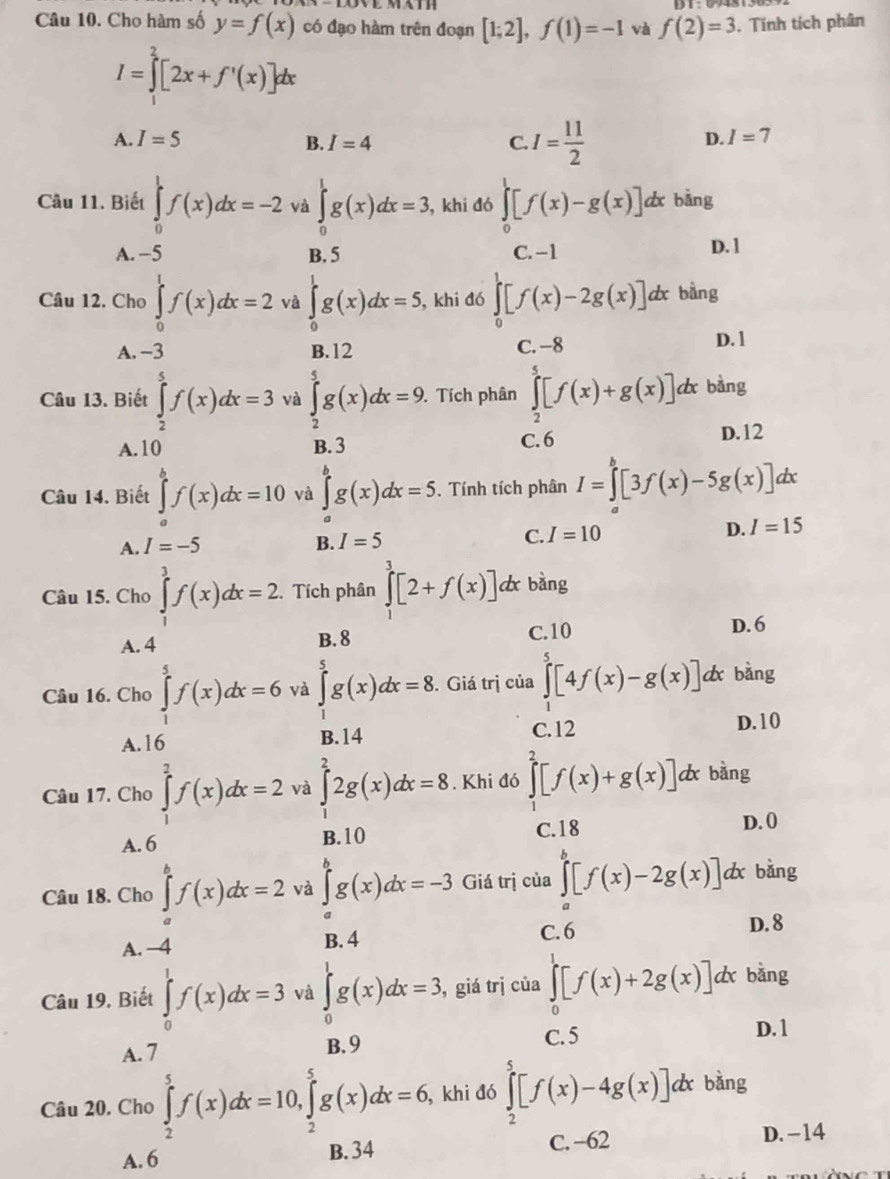 LOVE MATH
Câu 10. Cho hàm số y = f(x) có đạo hàm trên đoạn [1;2], f(1) = −1 và f(2) = 3. Tính tích phân
I = ∫₁² [2x + f'(x)]dx
A. I = 5 B. I = 4 C. I = 11/2 D. I = 7
Câu 11. Biết ∫₀¹ f(x)dx = −2 và ∫₀¹ g(x)dx = 3, khi đó ∫₀¹ [f(x) − g(x)]dx bằng
A. −5 B. 5 C. −1 D. 1
Câu 12. Cho ∫₀¹ f(x)dx = 2 và ∫₀¹ g(x)dx = 5, khi đó ∫₀¹ [f(x) − 2g(x)]dx bằng
A. −3 B. 12 C. −8 D. 1
Câu 13. Biết ∫₂⁵ f(x)dx = 3 và ∫₂⁵ g(x)dx = 9. Tích phân ∫₂⁵ [f(x) + g(x)]dx bằng
A. 10 B. 3 C. 6 D. 12
Câu 14. Biết ∫ₐᵇ f(x)dx = 10 và ∫ₐᵇ g(x)dx = 5. Tính tích phân I = ∫ₐᵇ [3f(x) − 5g(x)]dx
A. I = −5 B. I = 5 C. I = 10 D. I = 15
Câu 15. Cho ∫₁³ f(x)dx = 2. Tích phân ∫₁³ [2 + f(x)]dx bằng
A. 4 B. 8 C. 10 D. 6
Câu 16. Cho ∫₁⁵ f(x)dx = 6 và ∫₁⁵ g(x)dx = 8. Giá trị của ∫₁⁵ [4f(x) − g(x)]dx bằng
A. 16 B. 14 C. 12 D. 10
Câu 17. Cho ∫₁² f(x)dx = 2 và ∫₁² 2g(x)dx = 8. Khi đó ∫₁² [f(x) + g(x)]dx bằng
A. 6 B. 10 C. 18 D. 0
Câu 18. Cho ∫ₐᵇ f(x)dx = 2 và ∫ₐᵇ g(x)dx = −3 Giá trị của ∫ₐᵇ [f(x) − 2g(x)]dx bằng
A. −4 B. 4 C. 6 D. 8
Câu 19. Biết ∫₀¹ f(x)dx = 3 và ∫₀¹ g(x)dx = 3, giá trị của ∫₀¹ [f(x) + 2g(x)]dx bằng
A. 7 B. 9 C. 5 D. 1
Câu 20. Cho ∫₂⁵ f(x)dx = 10, ∫₂⁵ g(x)dx = 6, khi đó ∫₂⁵ [f(x) − 4g(x)]dx bằng
A. 6 B. 34 C. −62 D. −14